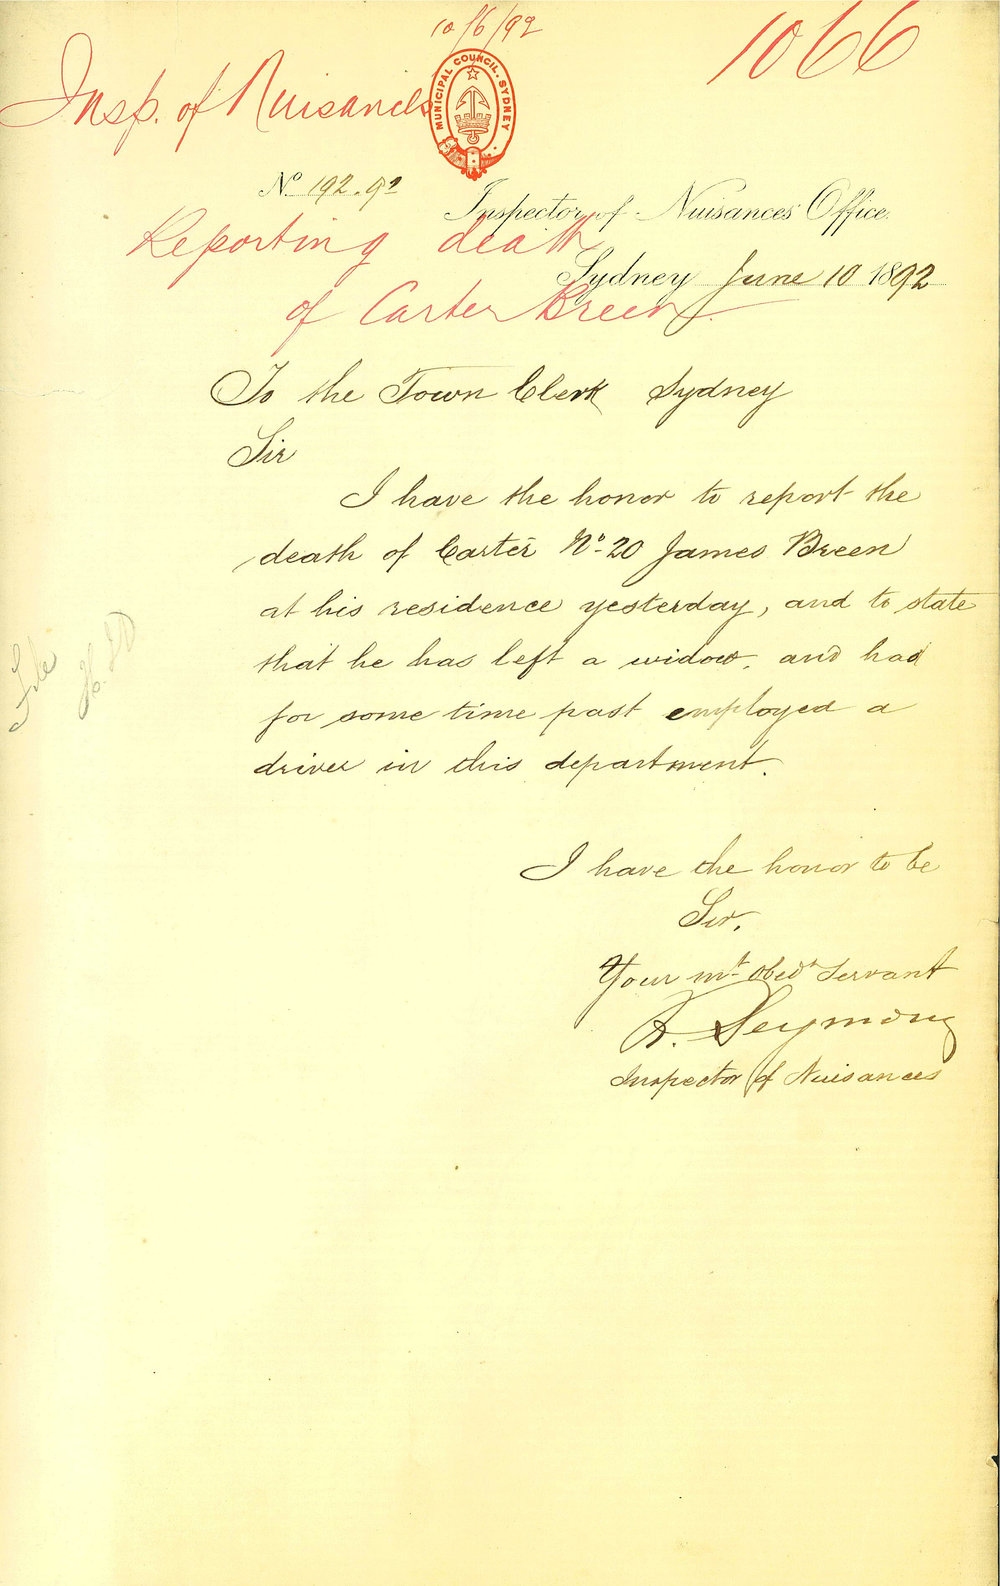 10/6/92
1066
Insp. of Nuisances
MUNICIPAL COUNCIL. SYDNEY
No 192.92
Inspector of Nuisances Office.
Reporting death
Sydney June 10 1892
of Carter Breen.
To the Town Clerk Sydney
Sir
I have the honor to report the
death of Carter No 20 James Breen
at his residence yesterday, and to state
that he has left a widow, and had
for some time past employed a
driver in this department.
File
I have the honor to be
Sir,
Your mt obedt Servant
R. Seymour
Inspector of Nuisances